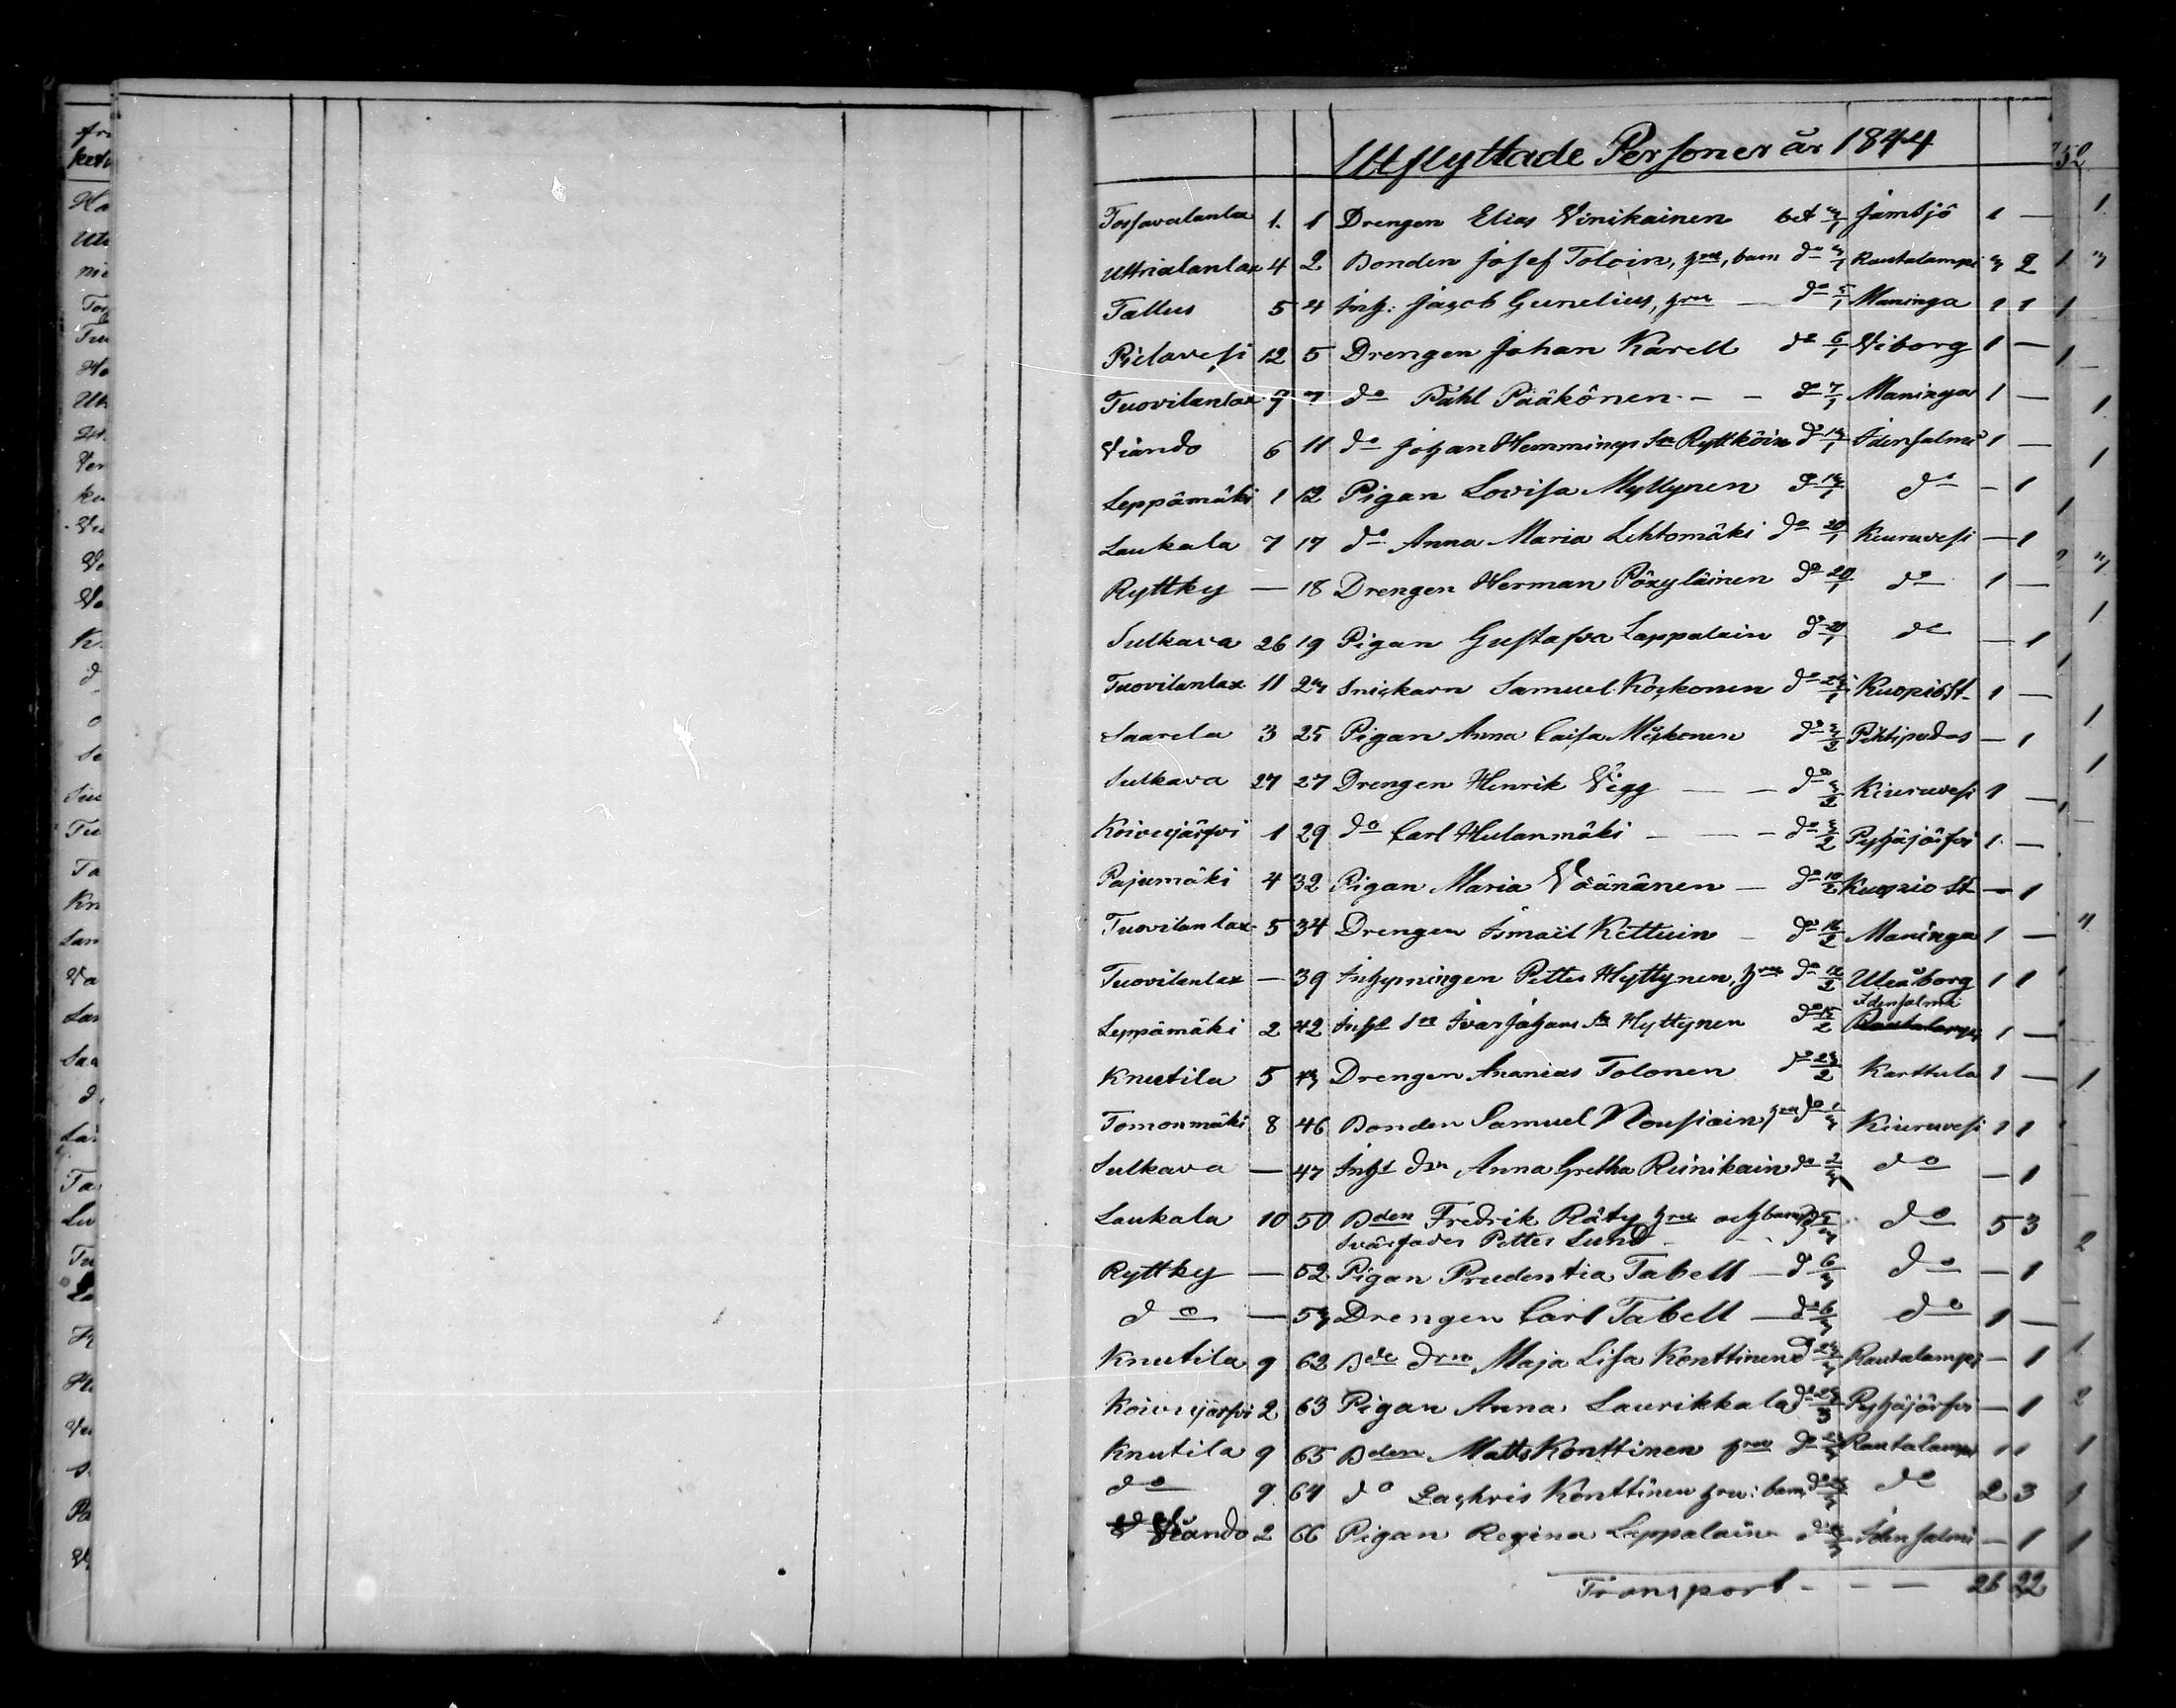 Utflyttade Personer år 1844
Tossavalanlax 1. 1 Drengen Elias Vinikainen bet 3/1 Jämbjö 1 —
Uttrialanlax 4 2 Bonden Josef Toloin, hru, barn do 3/1 Rautalampi 3 2
Tallus 5 4 Inh: Jacob Gunelius, hru — do 5/1 Maninga 1 1
Pielavesi 12 5 Drengen Johan Karell do 6/1 Viborg 1 —
Tuovilanlax 7 7 do Påhl Pääkönen — — do 7/1 Maninga 1 —
Viando 6 11 do Johan Hemmings Sn Ryttköin do 14/1 Idensalmi 1 —
Leppämäki 1 12 Pigan Lovisa Myllynen do 14/1 do — 1
Laukala 7 17 do Anna Maria Lehtomäki do 20/1 Kiuruvesi — 1
Ryttky — 18 Drengen Herman Pöxyläinen do 20/1 do 1 —
Sulkava 26 19 Pigan Gustafva Lappalain do 20/1 do — 1
Tuovilanlax 11 23 Snickarn Samuel Koskonen do 24/1 Kuopio St. 1 —
Saarela 3 25 Pigan Anna Caisa Möykonen do 3/2 Pihtipudas — 1
Sulkava 27 27 Drengen Henrik Vigg — — do 4/2 Kiuruvesi 1 —
Koivujärfvi 1 29 do Carl Hulanmäki — — — do 4/2 Pyhäjärfvi 1 —
Pajumäki 4 32 Pigan Maria Väänänen — do 10/2 Kuopio St — 1
Tuovilanlax 5 34 Drengen Ismaël Kettuin — do 16/2 Maninga 1 —
Tuovilanlax — 39 Inhysningen Petter Hyttynen, hru do 18/2 Uleåborg 1 1
Idensalmi
Leppämäki 2 42 Inhs Sn Ivar Johans Sn Hyttynen do 15/2 Rautalampi 1 —
Knutila 5 43 Drengen Ananias Tolonen do 23/2 Karttula 1 —
Tomonmäki 8 46 Bonden Samuel Nousiain, hru do 1/3 Kiuruvesi 1 1
Sulkava — 47 Inhs dn Anna Gretha Reinikain do 2/3 do — 1
Laukala 10 50 Bden Fredrik Räty hru och barn do 5/3 do 5 3
Svärfader Petter Lund
Ryttky — 52 Pigan Prudentia Tabell — d 6/3 do — 1
do — 53 Drengen Carl Tabell — do 6/3 do 1 —
Knutila 9 62 Bde dra Maja Lisa Konttinen d 24/3 Rautalampi — 1
Koivujärfvi 2 63 Pigan Anna Laurikkala do 24/3 Pyhäjärfvi — 1
Knutila 9 65 Bden Matts Konttinen hru do Rautalampi 1 1
do 9 64 do Zachris Konttinen hru: barn do do 2 3
Viando 2 66 Pigan Regina Lappalain do Idensalmi — 1
Transport — — — 26 22